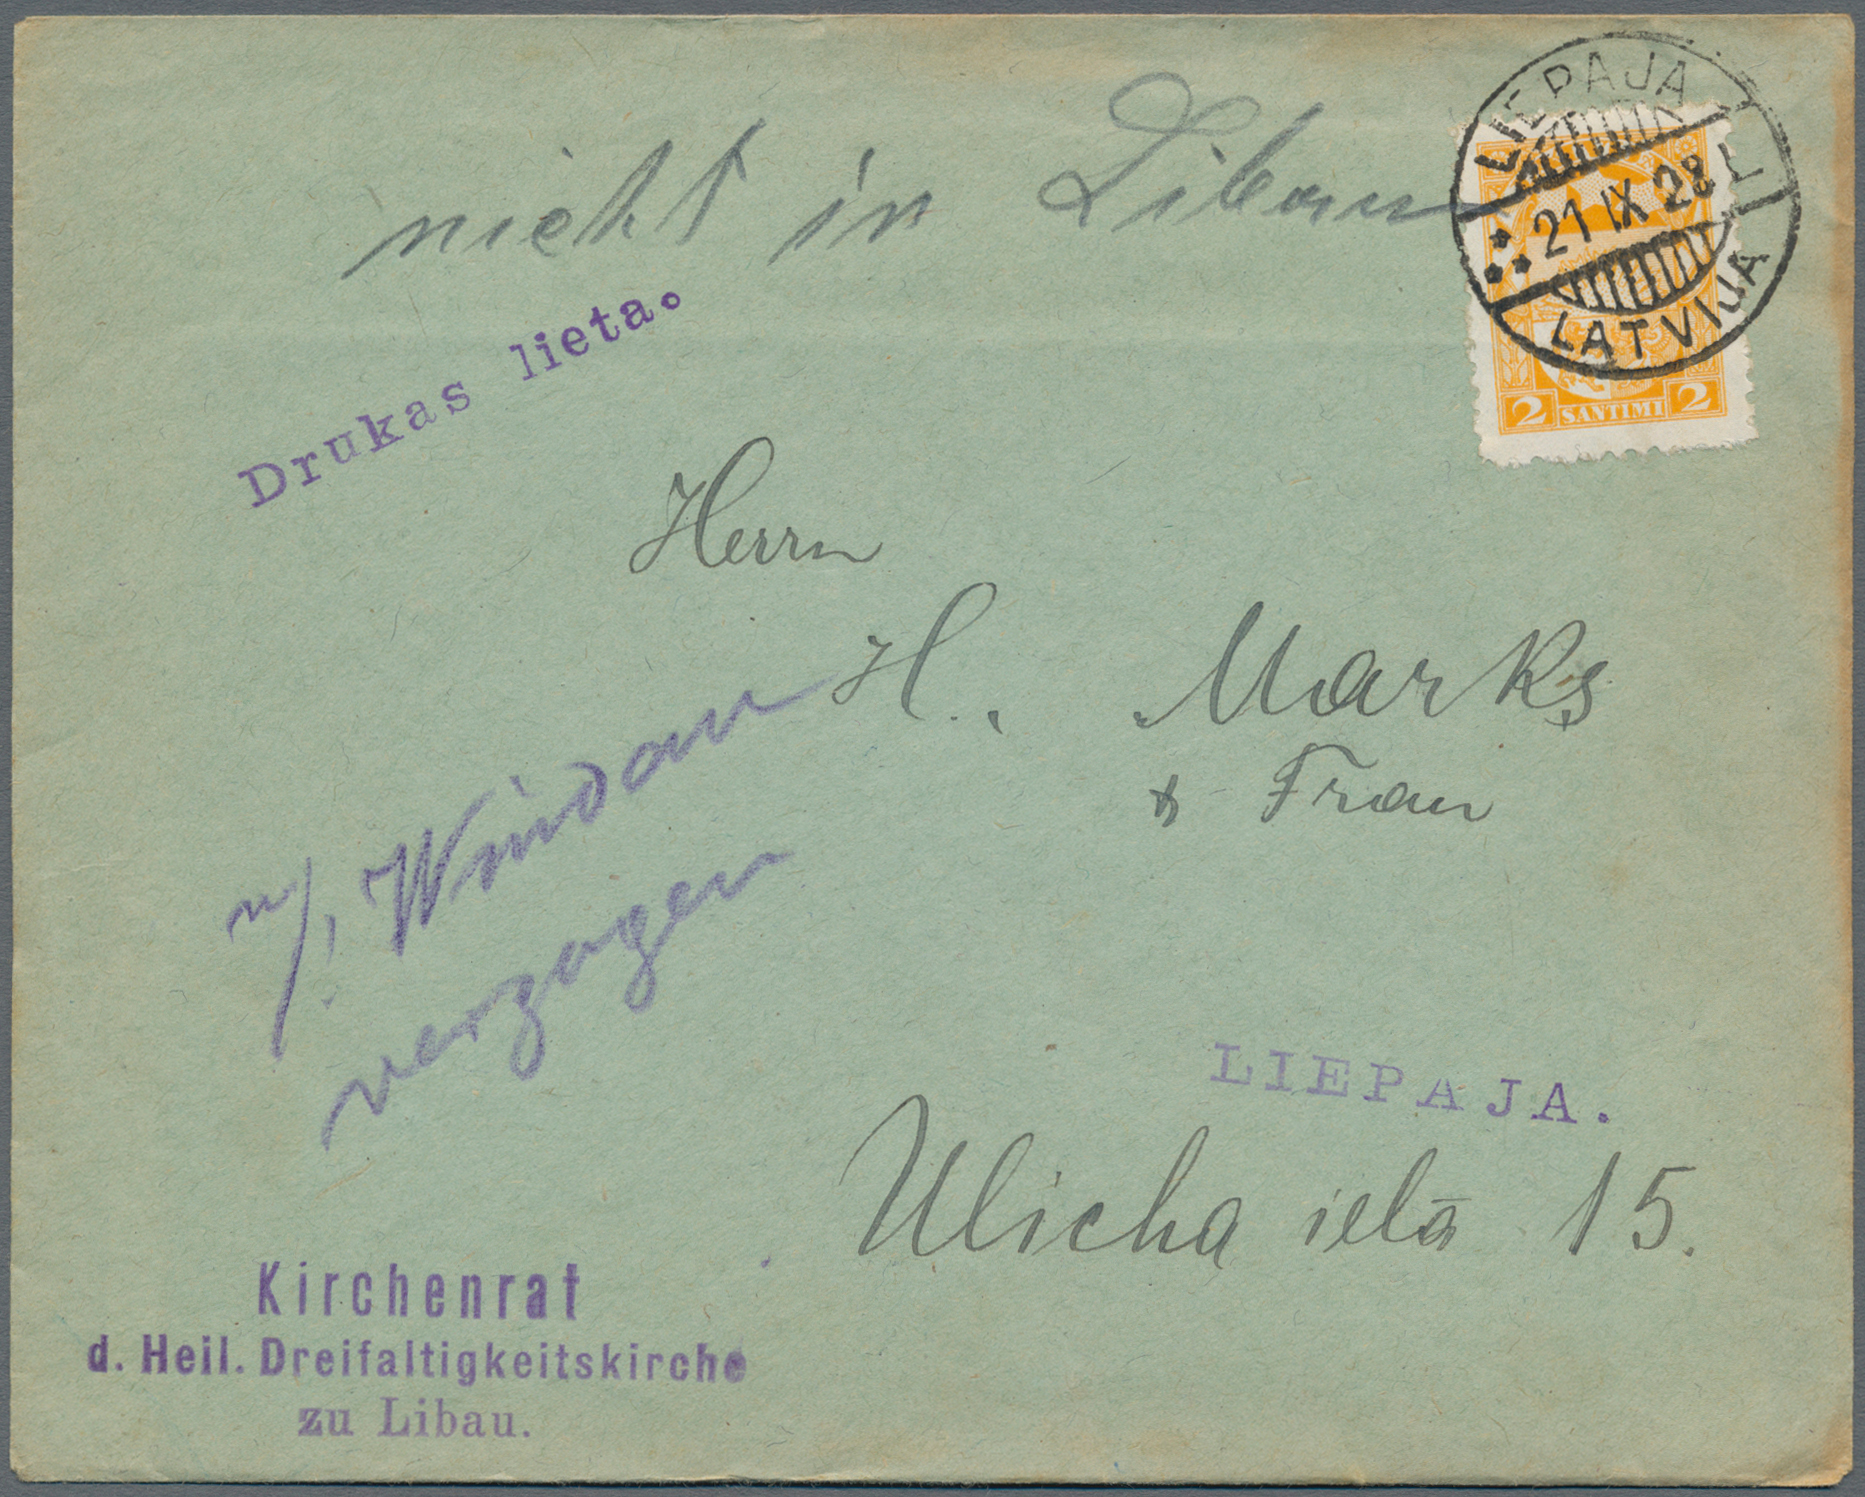 nicht in Libau
LIEPAJA
21 IX 28
LATVIJA
2 SANTIMI 2
Drukas lieta.
Herrn
H. Marks
& Frau
n/! Windau
verzogen
LIEPAJA.
Ulicha ielā 15.
Kirchenrat
d. Heil. Dreifaltigkeitskirche
zu Libau.